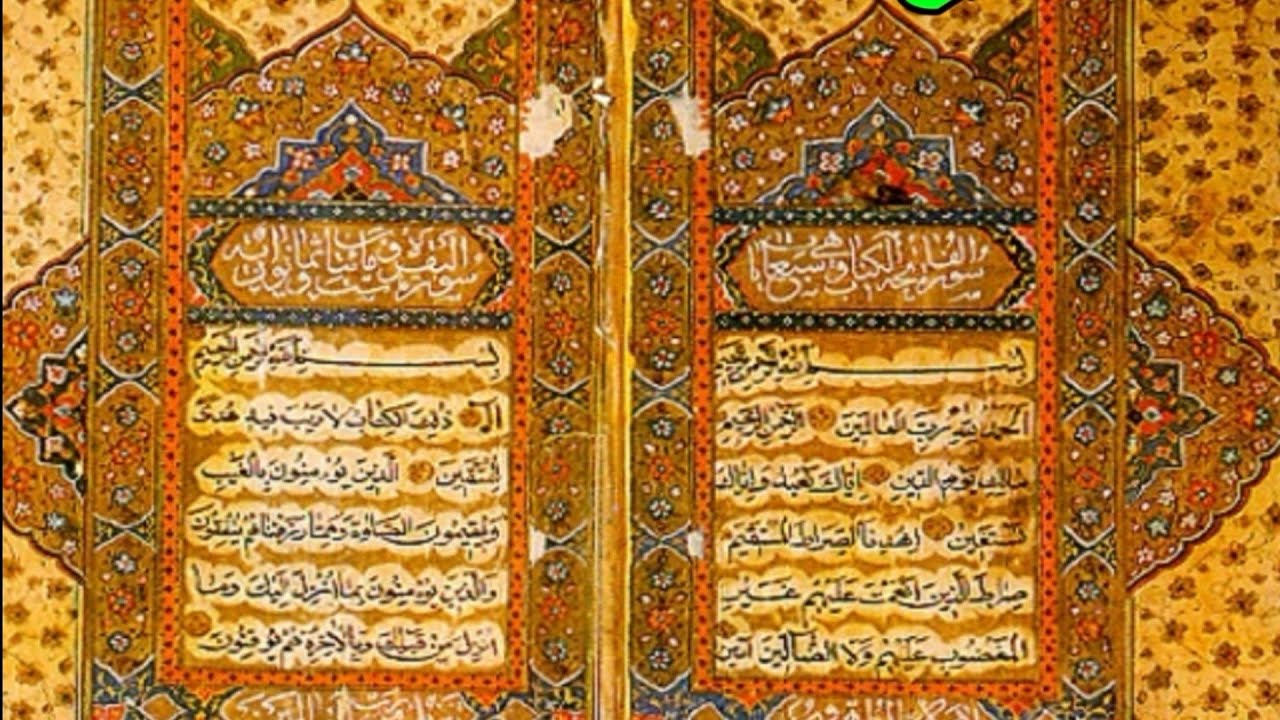 سورة الفاتحة الكتاب وهي سبع ايات
بسم الله الرحمن الرحيم
الحمد لله رب العالمين الرحمن الرحيم
مالك يوم الدين اياك نعبد واياك
نستعين اهدنا الصراط المستقيم
صراط الذين انعمت عليهم غير
المغضوب عليهم ولا الضالين آمين
سورة البقرة مائتان وست وثمانون اية
بسم الله الرحمن الرحيم
الم ذلك الكتاب لا ريب فيه هدى
للمتقين الذين يؤمنون بالغيب
ويقيمون الصلوة ومما رزقناهم ينفقون
والذين يؤمنون بما انزل اليك وما
انزل من قبلك وبالاخرة هم يوقنون